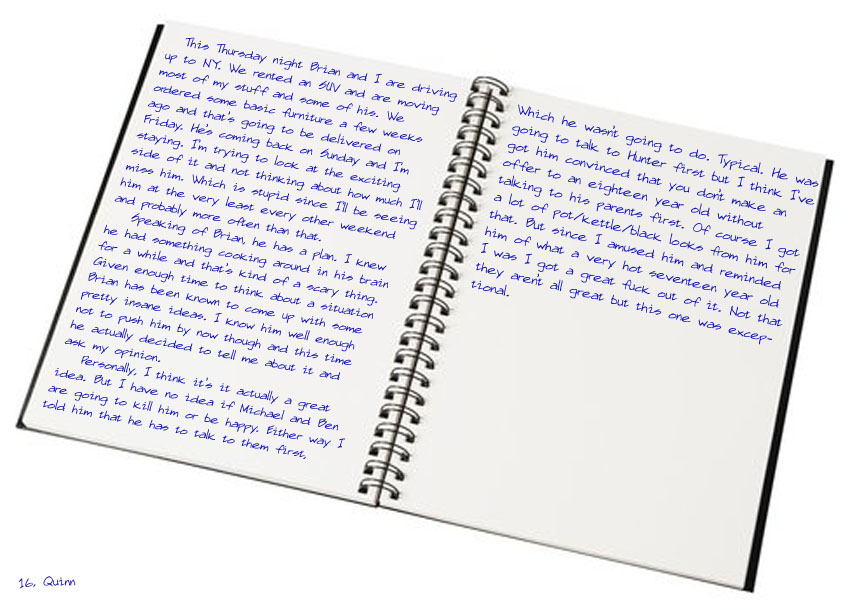 This Thursday night Brian and I are driving
up to NY. We rented an SUV and are moving
most of my stuff and some of his. We
ordered some basic furniture a few weeks
ago and that's going to be delivered on
Friday. He's coming back on Sunday and I'm
staying. I'm trying to look at the exciting
side of it and not thinking about how much I'll
miss him. Which is stupid since I'll be seeing
him at the very least every other weekend
and probably more often than that.
Speaking of Brian, he has a plan. I knew
he had something cooking around in his brain
for a while and that's kind of a scary thing.
Given enough time to think about a situation
Brian has been known to come up with some
pretty insane ideas. I know him well enough
not to push him by now though and this time
he actually decided to tell me about it and
ask my opinion.
Personally, I think it's it actually a great
idea. But I have no idea if Michael and Ben
are going to kill him or be happy. Either way I
told him that he has to talk to them first.
Which he wasn't going to do. Typical. He was
going to talk to Hunter first but I think I've
got him convinced that you don't make an
offer to an eighteen year old without
talking to his parents first. Of course I got
a lot of pot/kettle/black looks from him for
that. But since I amused him and reminded
him of what a very hot seventeen year old
I was I got a great fuck out of it. Not that
they aren't all great but this one was excep-
tional.
16. Quinn